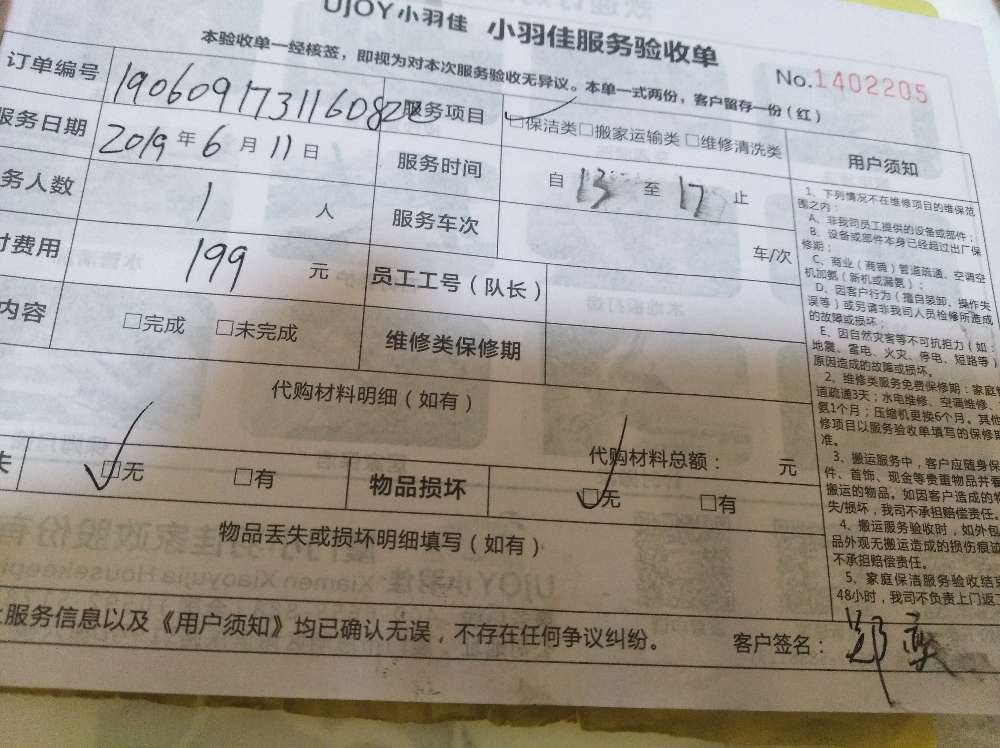 UJOY小羽佳 小羽佳服务验收单
本验收单一经核签，即视为对本次服务验收无异议。本单一式两份，客户留存一份（红）
No.1402205
订单编号 服务项目 □保洁类□搬家运输类 □维修清洗类
服务日期 2019 年 6 月 11 日 服务时间 自 13 至 17 止
务人数 1 人 服务车次 车/次
付费用 199 元 员工工号（队长）
内容 □完成 □未完成 维修类保修期
代购材料明细（如有）
代购材料总额： 元
失 □无 □有 物品损坏 □无 □有
物品丢失或损坏明细填写（如有）
服务信息以及《用户须知》均已确认无误，不存在任何争议纠纷。 客户签名：
用户须知
1、下列情况不在维修项目的维保范
围之内：
A、非我司员工提供的设备或部件；
B、设备或部件本身已经超过出厂保
修期；
C、商业（商铺）管道疏通、空调空
机加氨（新机或漏氨）；
D、因客户行为（擅自装卸、操作失
误等）或另请非我司人员检修所造成
的故障或损坏；
E、因自然灾害等不可抗拒力（如：
地震、雷电、火灾、停电、短路等）
原因造成的故障或损坏。
2、维修类服务免费保修期：家庭管
道疏通3天；水电维修、空调维修、
氨1个月；压缩机更换6个月。其他
修项目以服务验收单填写的保修期
准。
3、搬运服务中，客户应随身保
件、首饰、现金等贵重物品并看
搬运的物品。如因客户造成的物
失/损坏，我司不承担赔偿责任。
4、搬运服务验收时，如外包
品外观无搬运造成的损伤痕迹
不承担赔偿责任。
5、家庭保洁服务验收结束
48小时，我司不负责上门返工